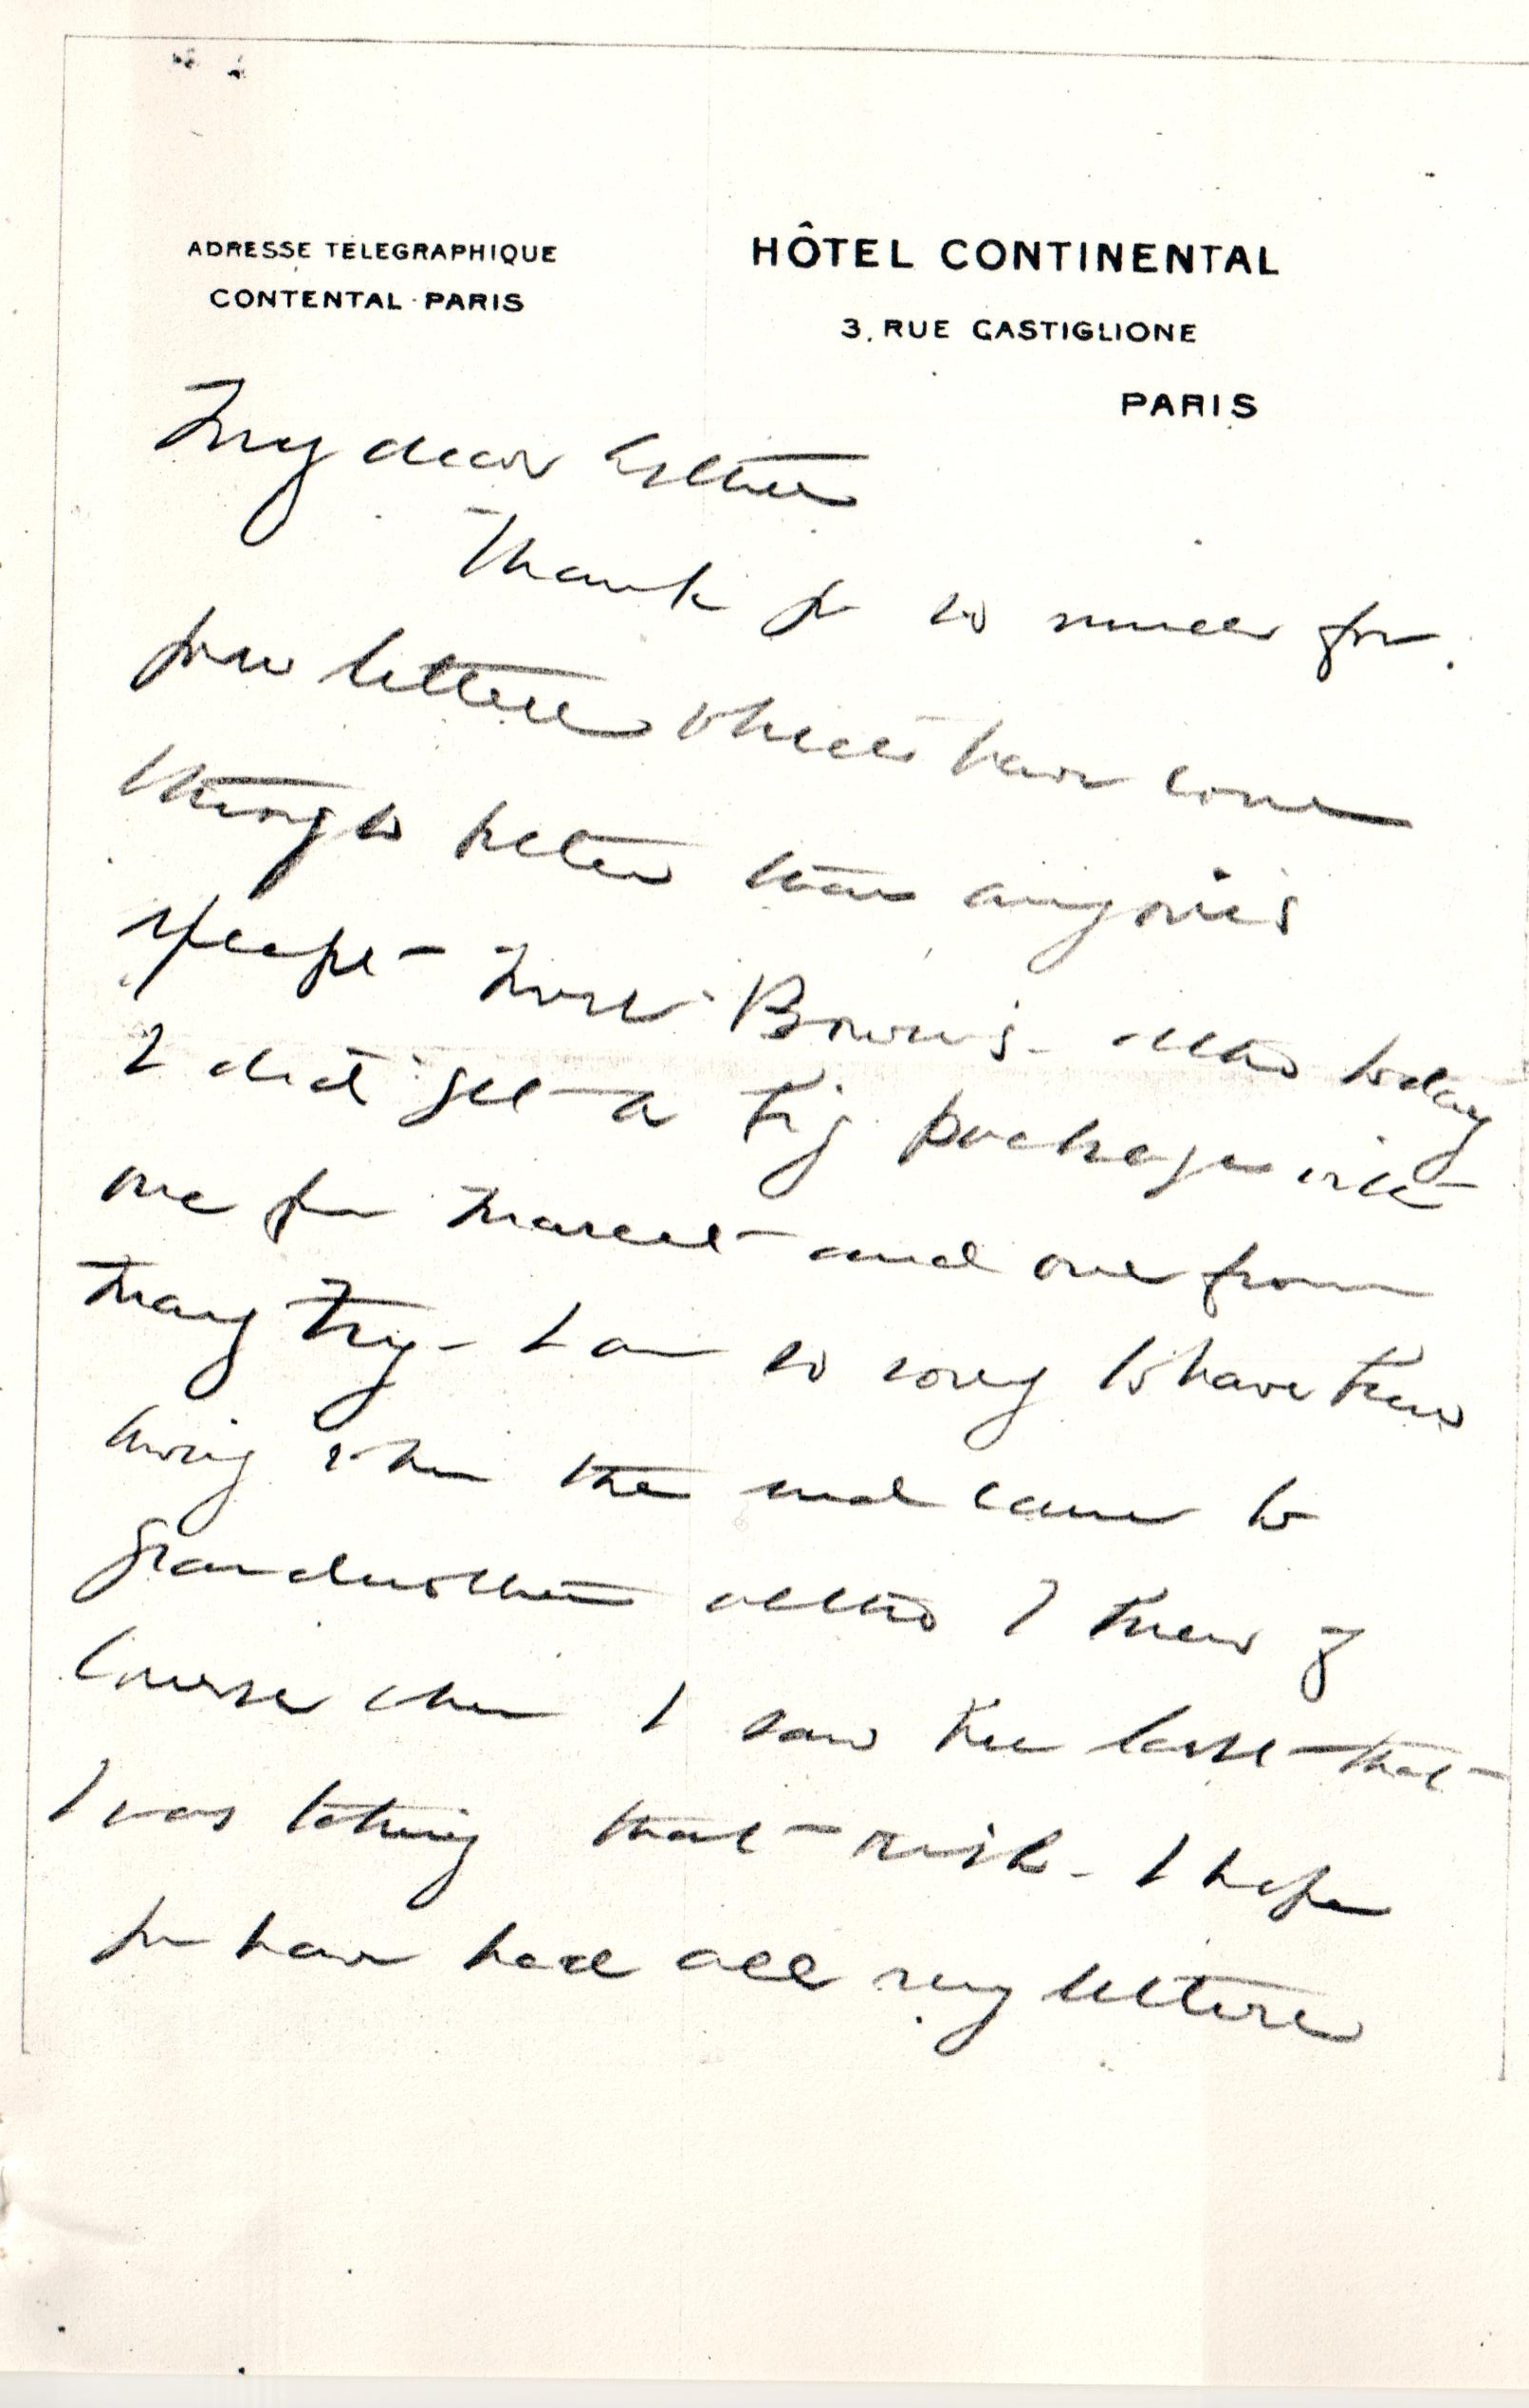 ADRESSE TÉLEGRAPHIQUE
CONTENTAL · PARIS
HÔTEL CONTINENTAL
3, RUE CASTIGLIONE
PARIS
My dear Esther
Thank you so much for
your letters which have come
through better than anyone's
except Bowin's. altho today
I did get a big package with
one for and one from
Mary Fry - I am so sorry to have been
away when the end came to
grandmother altho I knew of
course when I saw her last that
I was taking that risk - I hope
you have had all my letters